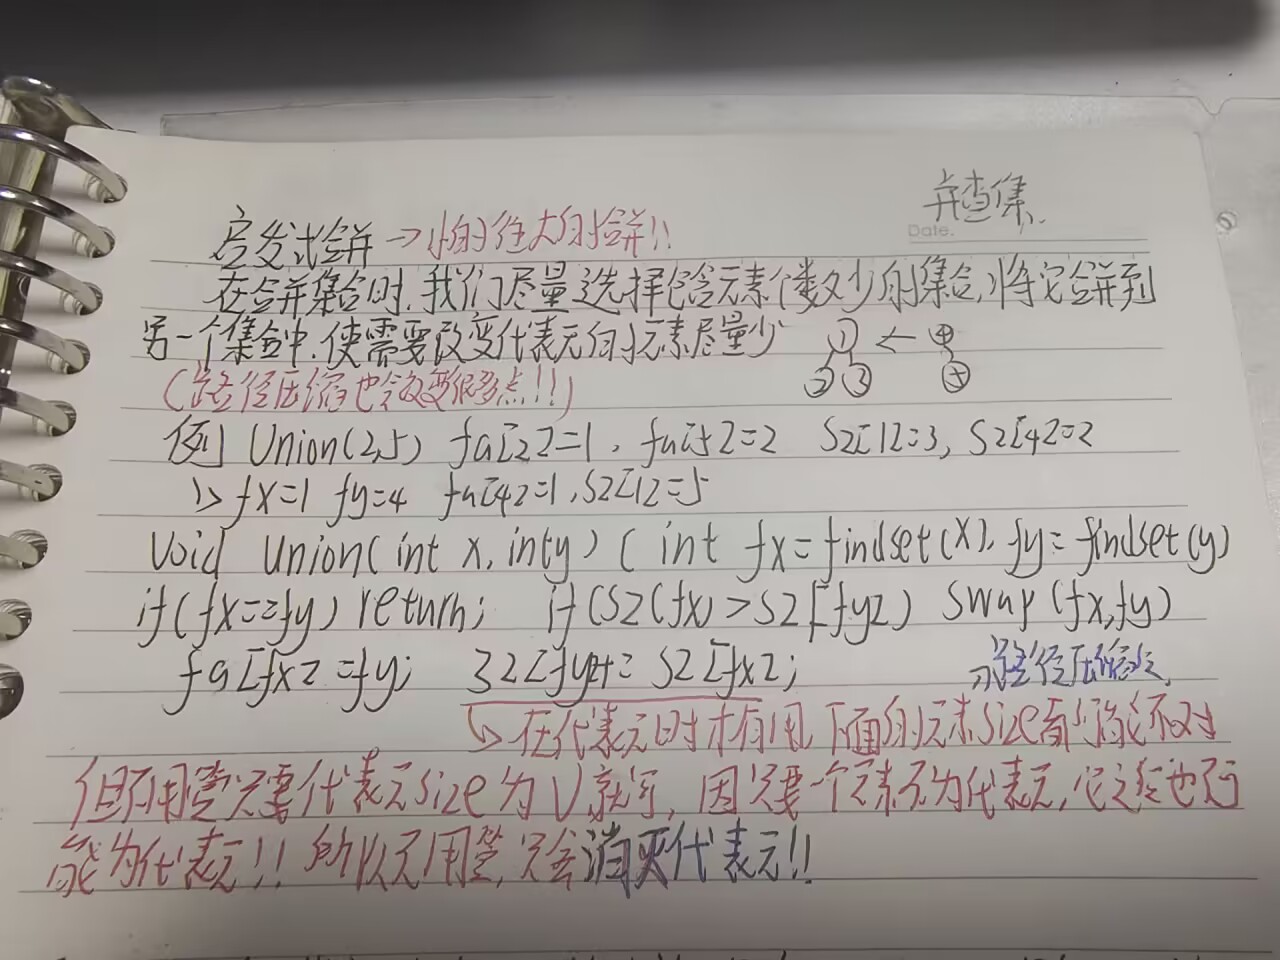 并查集.
Date.
启发式合并 → 小的往大的合并!!
在合并集合时,我们尽量选择包含元素个数少的集合,将它合并到
另一个集合中,使需要改变代表元的元素尽量少
① ← ④
② ③ ⑤
(路径压缩也会改变很多点!!)
例 Union(2,5) fa[2]=1, fa[5]=2 sz[1]=3, sz[4]=2
fx=1 fy=4 fa[4]=1, sz[1]=5
void Union(int x, int y) { int fx=findset(x), fy=findset(y)
if(fx==fy) return; if(sz(fx)>sz[fy]) swap(fx,fy)
fa[fx]=fy; sz[fy]+=sz[fx];
路径压缩
↳ 在代表元时才有用,下面的元素size都可能不对
但不用管只要代表元size为√就行,因只要一个元素不为代表元,它之后也不可
能为代表元!! 所以不用管,只会消灭代表元!!